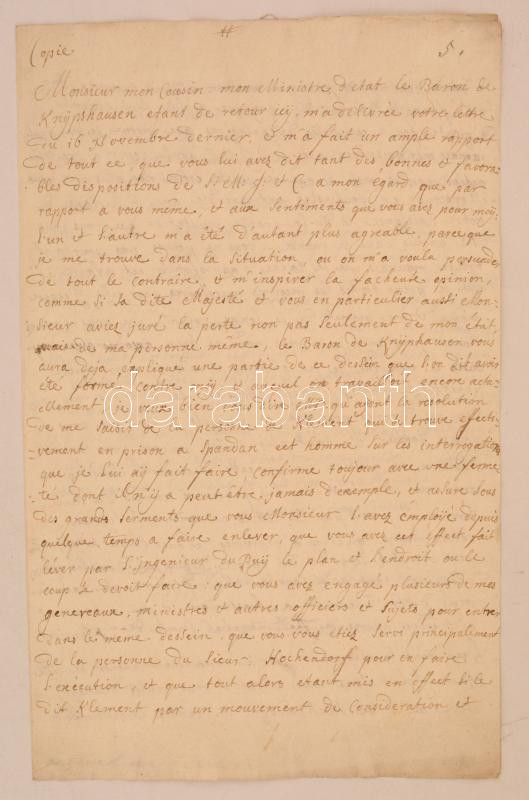 #
Copie
5.
Monsieur mon Cousin. mon Ministre d'etat le Baron de
Knÿpshausen etant de retour icy, m'a delivrée votre lettre
du 16 Novembre dernier, et m'a fait un ample rapport
de tout ce, que vous lui avez dit tant des bonnes et favora-
bles dispositions de S. M. J. et C. a mon egard que par
rapport a vous même, et aux Sentiments que vous avez pour moÿ.
L'un et l'autre m'a été d'autant plus agreable, parce que
je me trouve dans la Situation, ou on m'a voulu persuader
de tout le contraire, et m'inspirer la facheuse opinion,
comme si Sa dite Majesté et vous en particulier aussi Mon-
sieur aviez juré la perte non pas Seulement de mon état,
mais de ma personne même, le Baron de Knÿphausen vous
aura deja expliqué une partie de ce dessein que l'on dit avoir
été formé contre moÿ, et auquel on travailloit encore actu-
ellement, je veux bien vous dire
de me Saisir de la personne de Klement qui Se trouve effecti-
vement en prison a Spandau cet homme Sur les interrogations
que je lui aÿ fait faire confirme toujour avec une ferme-
té dont il n'ÿ a peut être jamais d'exemple, et asure Sous
des grands Serments que vous Monsieur l'avez employé depuis
quelque temps a faire enlever, que vous avez cet effect fait
lever par l'Jngenieur du Buÿ le plan et l'endroit ou le
coup Se devoit faire: que vous avez engagé plusieurs de mes
genereaux, ministres et autres officiers et Sujets pour entrer
dans le meme dessein, que vous vous etiez Servi principalement
de la personne du Sieur Hochendorf pour en faire
l'exécution, et que tout alors etant mis en effect Si le
dit Klement par un mouvement de Consideration et
darabanth